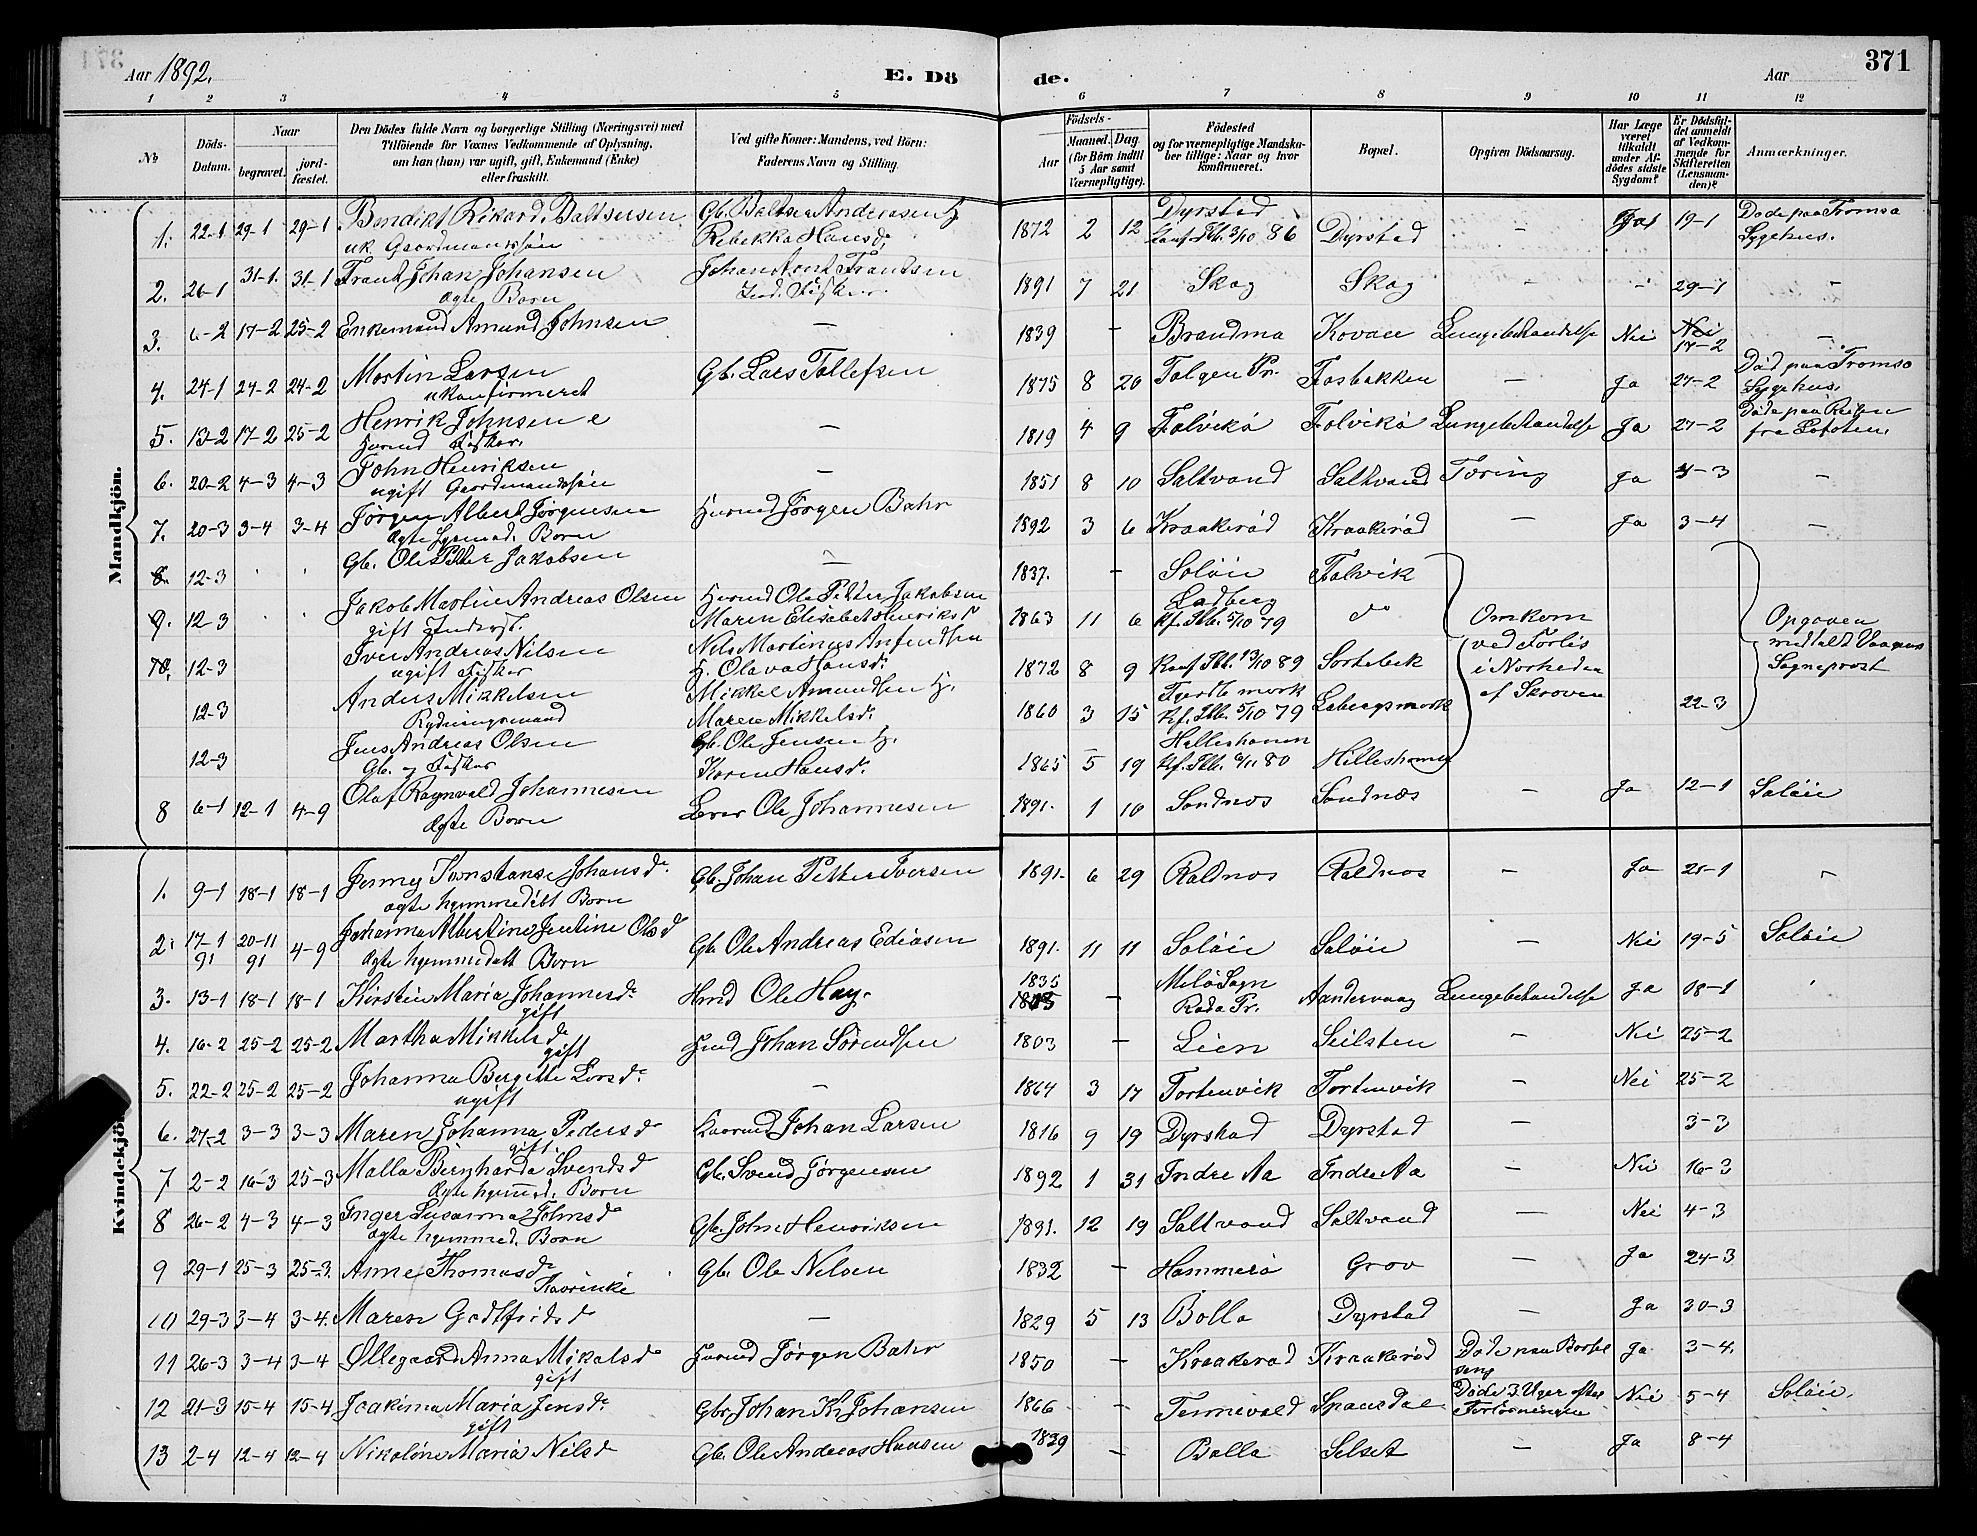 Aar 1892.
E. Dö
de.
Aar
371
1 2 3 4 5 6 7 8 9 10 11 12
No
Döds-
Datum.
Naar
begravet.
jord-
fæstet.
Den Dödes fulde Navn og borgerlige Stilling (Næringsvei) med
Tilföiende for Voxnes Vedkommende af Oplysning,
om han (hun) var ugift, gift, Enkemand (Enke)
eller fraskilt.
Ved gifte Koner: Mandens, ved Börn:
Faderens Navn og Stilling.
Födsels-
Aar
Maaned. Dag.
(for Börn indtil
5 Aar samt
Værnepligtige).
Födested
og for værnepligtige Mandska-
ber tillige: Naar og hvor
konfirmeret.
Bopæl.
Opgiven Dödsaarsag.
Har Læge
været
tilkaldt
under Af-
dödes sidste
Sygdom?
Er Dödsfal-
det anmeldt
af Vedkom-
mende for
Skifteretten
(Lensman-
den)?
Anmærkninger.
Mandkjön.
1. 22-1 29-1 29-1 Bendikt Rikard Baltsersen Gb. Baltser Andreasen H. 1872 2 12 Dyrstad Dyrstad - 19-1 Døde paa Tromsø
uk Gaardmandssøn Rebekka Hansd. 3/10 86 Sygehus.
2. 26-1 31-1. 31-1 Frants Johan Johansen Johan Arnt Frantsen 1891 7 21 Skog Skog - - 29-1 -
ægte Barn
3. 6-2 17-2 25-2 Enkemand Amund Johnsen - 1839 - Brandmo Kovaen Lungebetændelse Nei Nei -
17-2
4. 24-1 24-2 24-2 Martin Larsen Gb. Lars Tollefsen 1875 8 20 Talgen Pr. Fosbakken - Ja 27-2 Død paa Tromsø
ukonfirmeret Sygehus.
5. 13-2 17-2 25-2 Henrik Johnsen - 1819 4 9 Folvikø Folvikø Lungebetændelse Ja 27-2 Døde paa Reisen
Husmd Fisker. fra Lofoten.
6. 20-2 4-3 4-3 John Henriksen - 1851 8 10 Saltvand Saltvand Tæring Ja 4-3 -
ugift Gaardmandssøn
7. 20-3 3-4 3-4 Jørgen Albert Jørgensen Husmd Jørgen Bahr 1892 3 6 Kraakerød Kraakerød - Ja 3-4 -
ægte hjemmed. Barn
8. 12-3 Gb. Ole Petter Jakobsen - 1837. - Soløie Folvik
9. 12-3 Jakob Martin Andreas Olsen Husmd Ole Petter Jakobsen 1863 11 6 Ladberg do Omkom Opgaven
gift Maren Elisabet Henriksd. 5/10 79
10. 12-3 Iver Andreas Nilsen Nils Martinus 1872 8 9 13/10 89 Sortebek ved Forlis
ugift Fisker H. Olava Hansd. i Norheden Sogneprost
12-3 Anders Mikkelsen Mikkel Amundsen H. 1860 3 15 Lebergsmark af Skroven 22-3
Rydningsmand Maren Mikkelsd. 5/10 79
12-3 Jens Andreas Olsen Gb. Ole Jensen H. 1865 5 19 Hilleshamn Hilleshamn
Gb. og Fisker Karen Hansd.
8 6-1 12-1 4-9 Olaf Ragnvald Johannesen Ole Johannesen 1891. 1 10 Sandnæs Sandnæs - Ja 12-1 Soløie
ægte Barn
Kvindekjön.
1. 9-1 18-1 18-1 Jenny Konstanse Johansd. Gb. Johan Petter Iversen 1891. 6 29 Raldnæs Raldnæs - Ja 21-1
ægte hjemmedøbt Barn
2. 17-1 91 20-11 91 4-9 Johanna Albertine Jentine Olsd Gb. Ole Andreas Ediasen 1891. 11 11 Soløie Soløie - Nei 19-5 Soløie
ægte hjemmedøbt Barn
3. 13-1 18-1 18-1 Kirstine Maria Johannesd. Hmd Ole Hay. 1835 - Aandervaag Lungebetændelse Ja 18-1
gift
4. 16-2 25-2 25-2 Martha Mikkelsd. Hmd Johan Sørendsen 1803 Lien Seilsten - Nei 25-2
gift
5. 22-2 25-2 25-2 Johanna Bergitte Larsd. - 1864 3 17 Tortenvik Tortenvik - Nei 25-2
ugift
6. 27-2 3-3 3-3 Maren Johanna Pedersd. Johan Larsen 1816 9 19 Dyrstad Dyrstad - 3-3
gift.
7 2-2 16-3 25-3 Malla Bernharda Svendsd Gb. Svend Jørgensen 1892 1 31 Indre Aa Indre Aa - Nei 16-3
ægte hjemmed. Barn
8 26-2 4-3 4-3 Inger Susanna Johnsd. Gb. John Henriksen 1891. 12 19 Saltvand Saltvand - Nei 4-3
ægte hjemmed. Barn
9 29-1 25-3 25-3. Anne Thomasd. Gb. Ole Nilsen 1832 - Hammerø Grov - Ja 24-3
Kaarenke
10 29-3 3-4 3-4. Maren Godtfridsd - 1829 5 13 Bolla Dyrstad - Ja 30-3
11 26-3 3-4 3-4 Øllegaard Anna Mikalsd. Husmd Jørgen Bahr 1850 - Kraakerød Kraakerød Døde paa Barsel Ja 3-4.
gift seng
12 21-3 15-4 15-4 Joakima Maria Jensd. Gbr. Johan Kr. Johansen 1866 - Tennevold Spansdal Døde 3 Uger efter Nei 5-4 Soløie.
gift Forløsningen
13 2-4 12-4 12-4 Nikoline Maria Nilsd. Gb. Ole Andreas Hansen 1839 - Bolla Selset - Ja 8-4